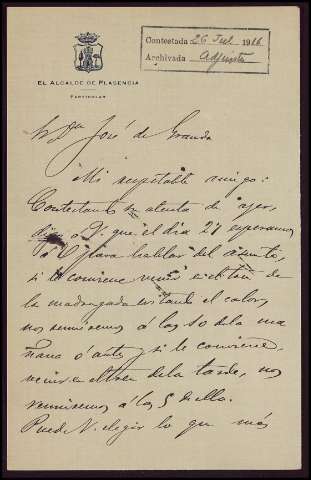 Contestada 26 Jul 1916
Archivada Adjunta
EL ALCALDE DE PLASENCIA
PARTICULAR
Dn José de Granda
Mi respetable amigo:
Contestando su atenta de ayer,
digo a V. que el dia 27 esperamos
á V. para hablar del asunto,
si le conviene venir en el tren de
la madrugada evitando el calor,
nos reuniremos á las 10 de la ma
ñana ó antes, y si le conviene
venir en el tren de la tarde, nos
reuniremos á las 5 de ella.
Puede V. elegir lo que más